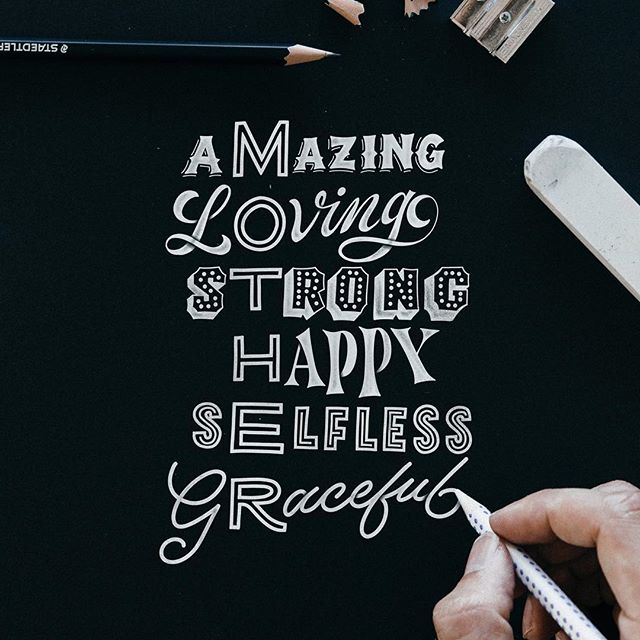 STAEDTLER
AMAZING
Loving
STRONG
HAPPY
SELFLESS
GRaceful